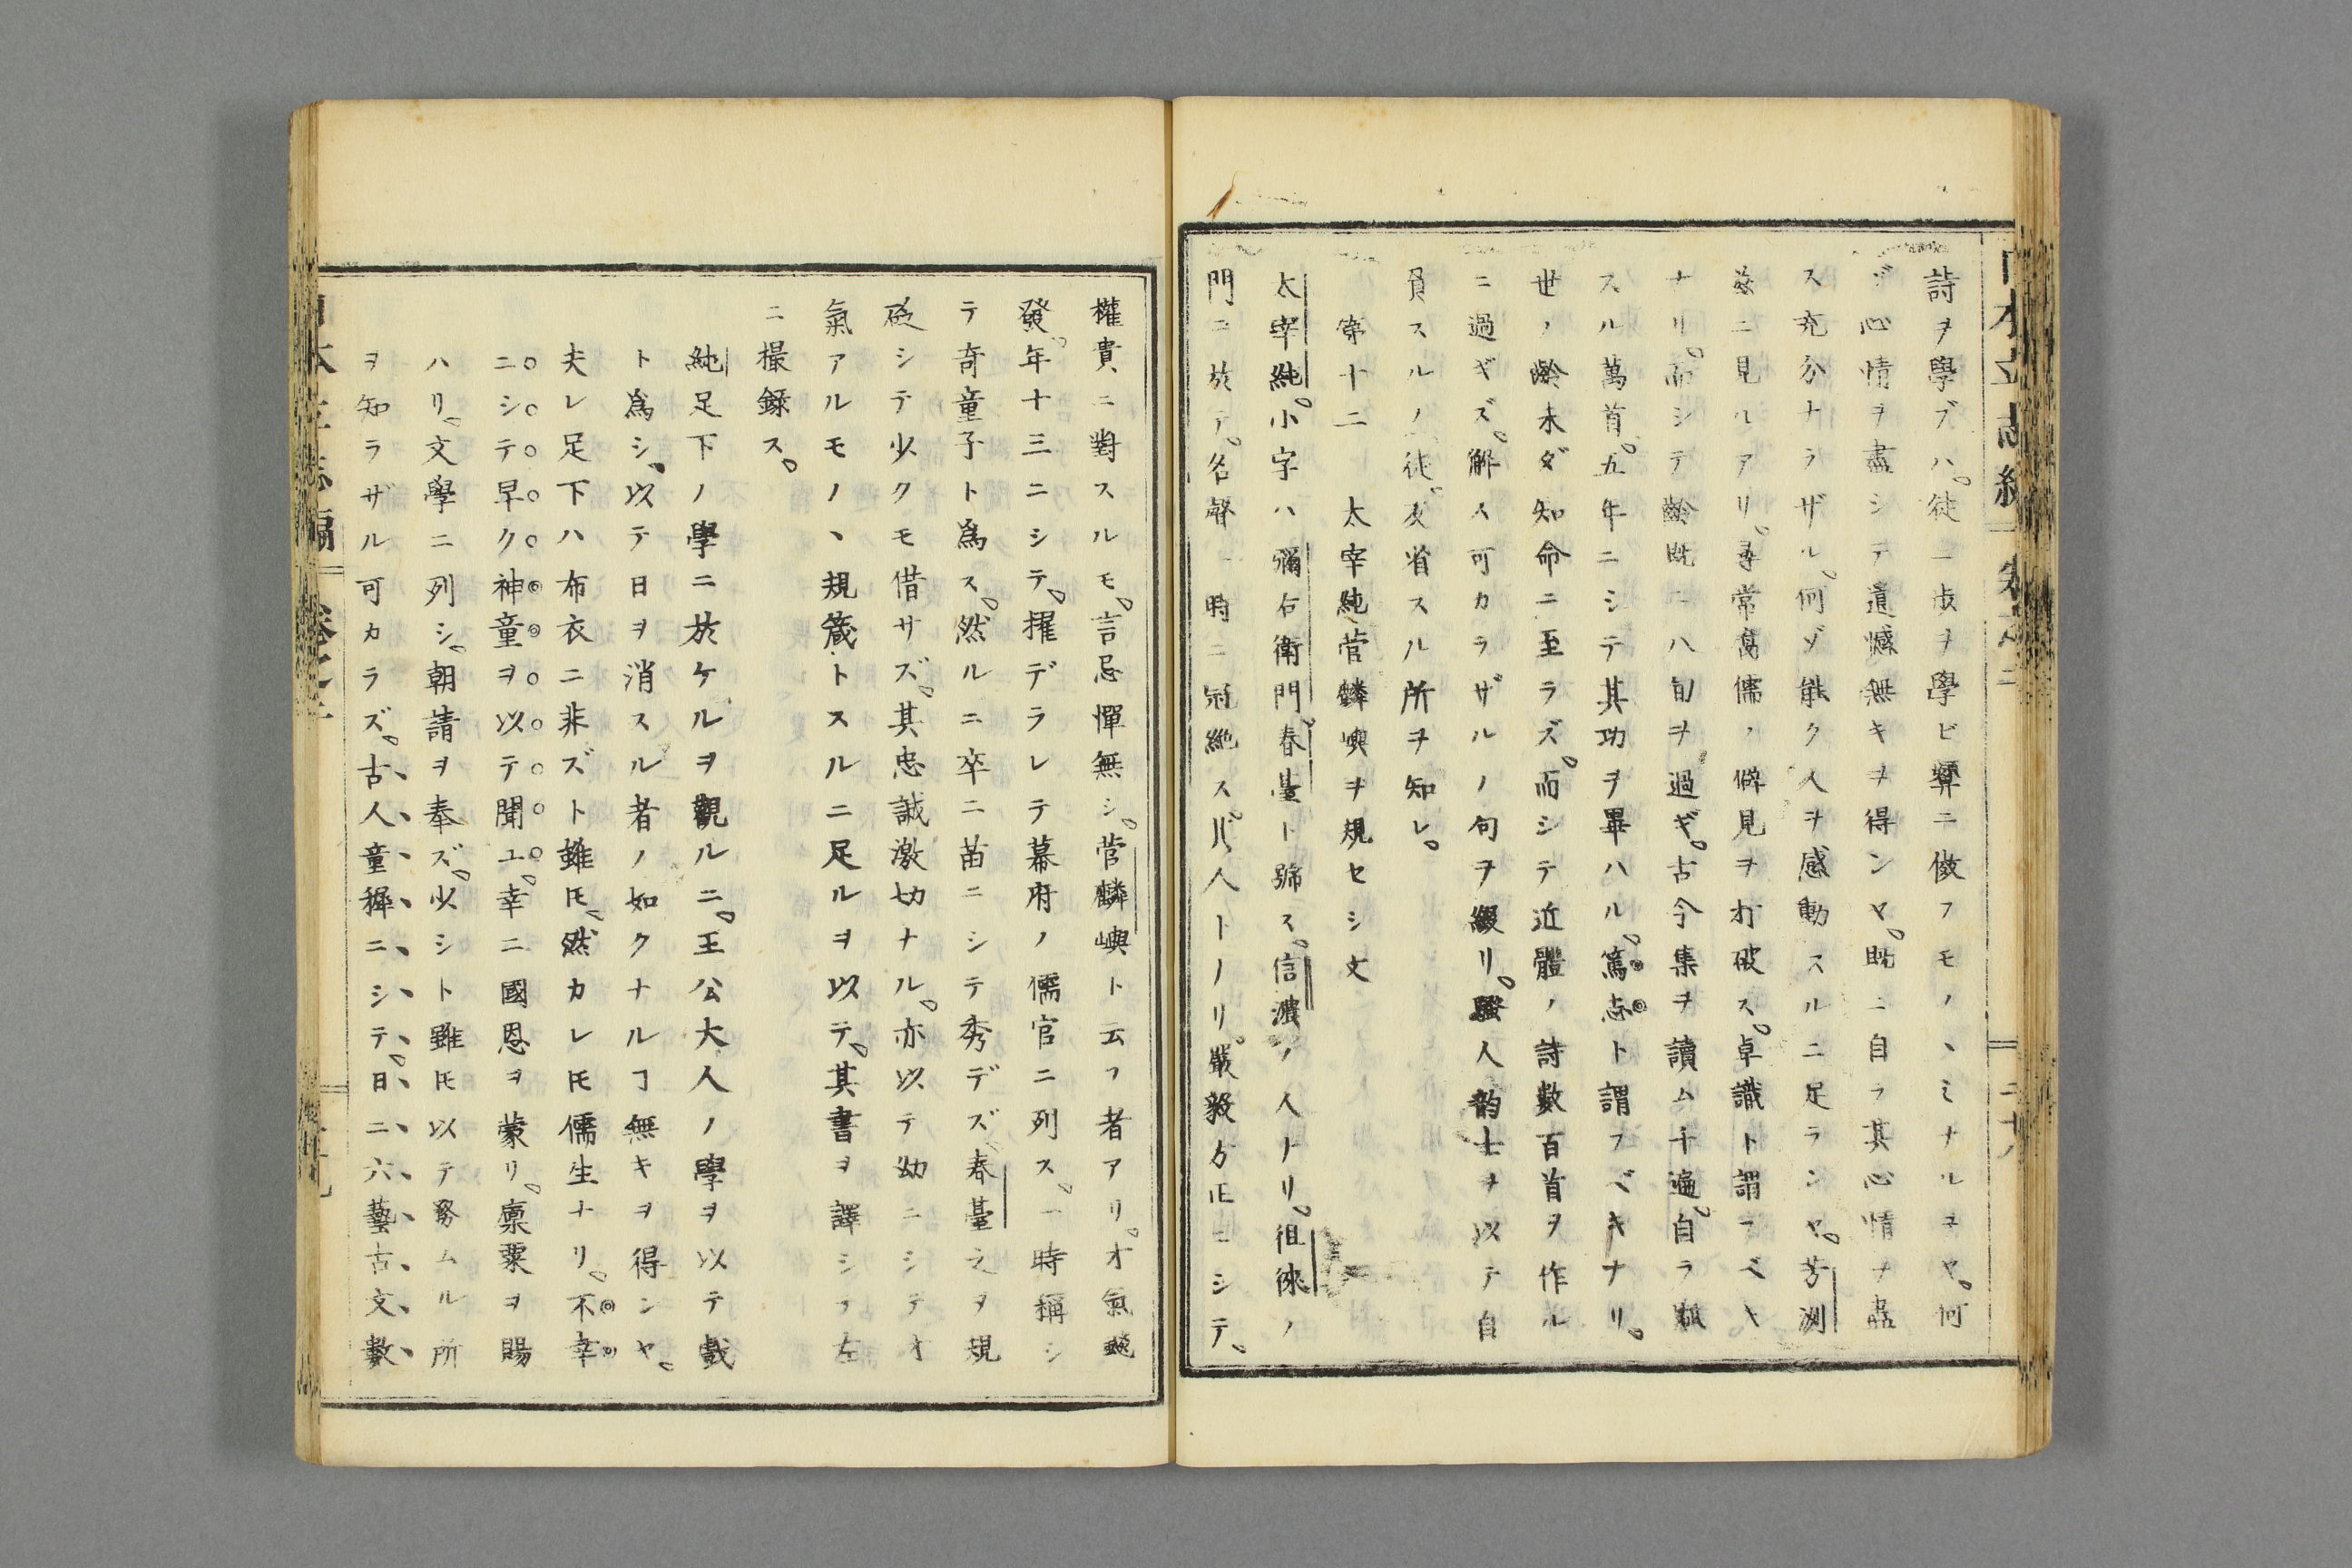 詩ヲ學ブハ。徒ニ歩ヲ學ビ顰ニ傚フモノヽミナルヲヤ。何
ゾ心情ヲ盡シテ遺憾無キヲ得ンヤ。既ニ自ラ其心情ヲ盡
ス充分ナラザル。何ゾ能ク人ヲ感動スルニ足ランヤ。芳洌
玆ニ見ルアリ。尋常窩儒ノ僻見ヲ打破ス。卓識ト謂フベキ
ナリ。而シテ齡既ニ八旬ヲ過ギ。古今集ヲ讀ム千遍。自ラ賦
スル萬首。五年ニシテ其功ヲ畢ハル。篤志ト謂フベキナリ。
世ノ齡未ダ知命ニ至ラズ。而シテ近體ノ詩數百首ヲ作ル
ニ過ギズ。解ス可カラザルノ句ヲ綴リ。騷人韵士ヲ以テ自
負スルノ徒。反省スル所ヲ知レ。
第十二 太宰純菅麟嶼ヲ規セシ文
太宰純。小字ハ彌右衛門。春臺ト號ス。信濃ノ人ナリ。徂徠ノ
門ニ於テ。名聲一時ニ冠絶ス。爲人トナリ。嚴毅方正ニシテ。
權貴ニ對スルモ。言忌憚無シ。菅麟嶼ト云フ者アリ。才氣穎
發。年十三ニシテ。擢デラレテ幕府ノ儒官ニ列ス。一時稱シ
テ奇童子ト爲ス。然ルニ卒ニ苗ニシテ秀デズ。春臺之ヲ規
砭シテ少クモ借サズ。其忠誠激切ナル。亦以テ幼ニシテ才
氣アルモノヽ規箴トスルニ足ルヲ以テ。其書ヲ譯シテ左
ニ撮録ス。
純足下ノ學ニ於ケルヲ觀ルニ。王公大人ノ學ヲ以テ戲
ト爲シ。以テ日ヲ消スル者ノ如クナルヿ無キヲ得ンヤ。
夫レ足下ハ布衣ニ非ズト雖𪜈。然カレ𪜈儒生ナリ。不幸
ニシテ早ク神童ヲ以テ聞ユ。幸ニ國恩ヲ蒙リ。廩粟ヲ賜
ハリ。文學ニ列シ。朝請ヲ奉ズ。少シト雖𪜈以テ務ムル所
ヲ知ラザル可カラズ。古人童穉ニシテ。日ニ六藝古文數